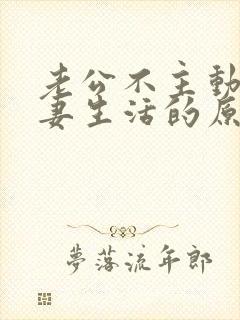 老公不主動
妻生活的原
夢落流年郎